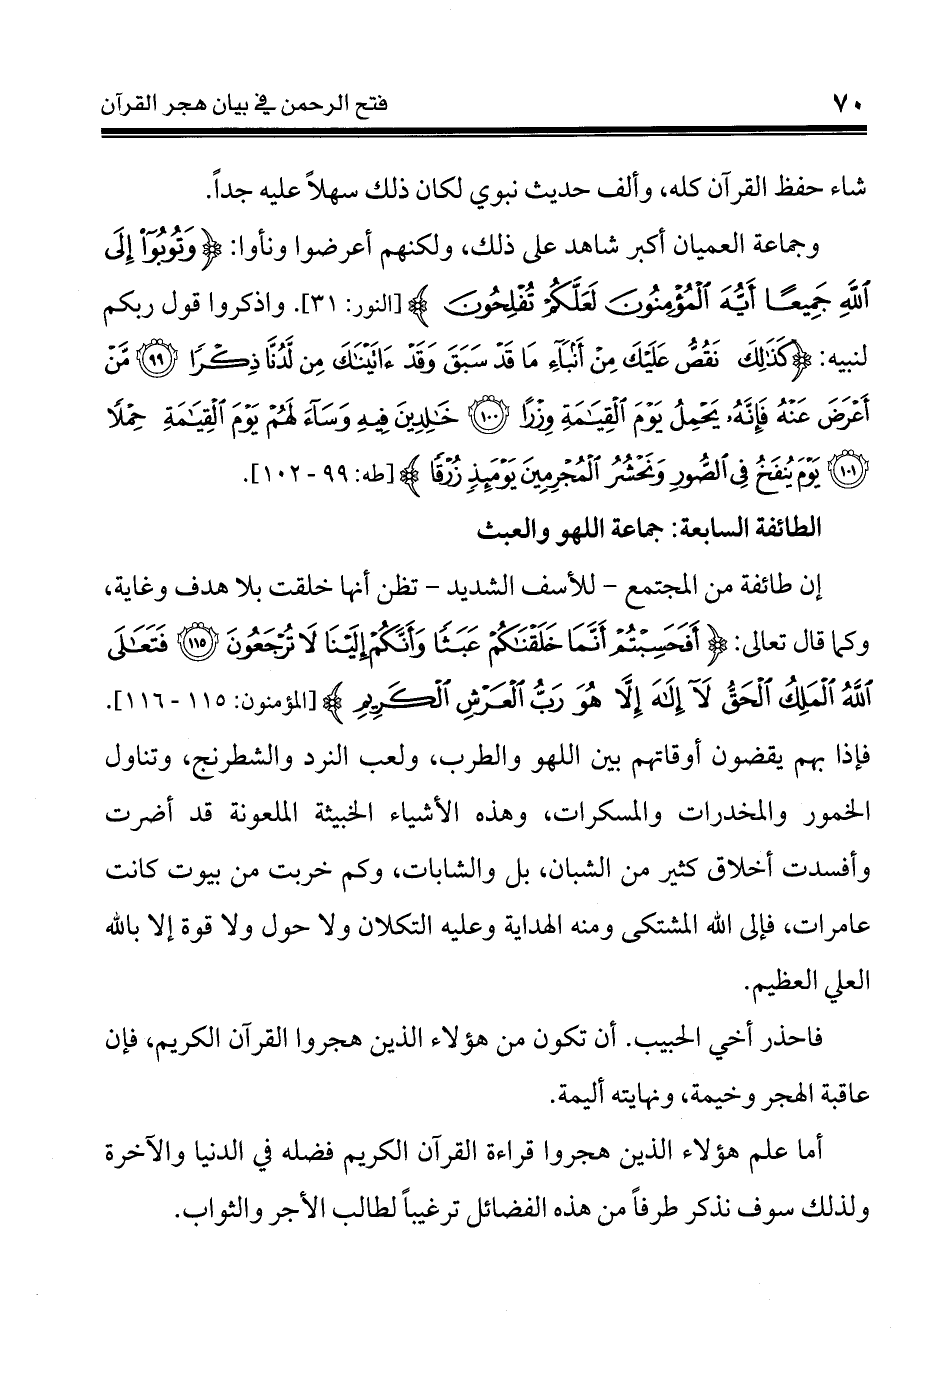 ٧٠ فتح الرحمن في بيان هجر القرآن
شاء حفظ القرآن كله، وألف حديث نبوي لكان ذلك سهلاً عليه جداً.
وجماعة العميان أكبر شاهد على ذلك، ولكنهم أعرضوا ونأوا: ﴿وَتُوبُوٓا۟ إِلَى
ٱللَّهِ جَمِيعًا أَيُّهَ ٱلْمُؤْمِنُونَ لَعَلَّكُمْ تُفْلِحُونَ ﴾ [النور: ٣١]. واذكروا قول ربكم
لنبيه: ﴿كَذَٰلِكَ نَقُصُّ عَلَيْكَ مِنْ أَنۢبَآءِ مَا قَدْ سَبَقَ وَقَدْ ءَاتَيْنَٰكَ مِن لَّدُنَّا ذِكْرًا ﴿٩٩﴾ مَّنْ
أَعْرَضَ عَنْهُ فَإِنَّهُۥ يَحْمِلُ يَوْمَ ٱلْقِيَٰمَةِ وِزْرًا ﴿١٠٠﴾ خَٰلِدِينَ فِيهِ وَسَآءَ لَهُمْ يَوْمَ ٱلْقِيَٰمَةِ حِمْلًا
﴿١٠١﴾ يَوْمَ يُنفَخُ فِى ٱلصُّورِ وَنَحْشُرُ ٱلْمُجْرِمِينَ يَوْمَئِذٍ زُرْقًا ﴾ [طه: ٩٩ - ١٠٢].
الطائفة السابعة: جماعة اللهو والعبث
إن طائفة من المجتمع – للأسف الشديد – تظن أنها خلقت بلا هدف وغاية،
وكما قال تعالى: ﴿ أَفَحَسِبْتُمْ أَنَّمَا خَلَقْنَٰكُمْ عَبَثًا وَأَنَّكُمْ إِلَيْنَا لَا تُرْجَعُونَ ﴿١١٥﴾ فَتَعَٰلَى
ٱللَّهُ ٱلْمَلِكُ ٱلْحَقُّ لَآ إِلَٰهَ إِلَّا هُوَ رَبُّ ٱلْعَرْشِ ٱلْكَرِيمِ ﴾ [المؤمنون: ١١٥ - ١١٦].
فإذا بهم يقضون أوقاتهم بين اللهو والطرب، ولعب النرد والشطرنج، وتناول
الخمور والمخدرات والمسكرات، وهذه الأشياء الخبيثة الملعونة قد أضرت
وأفسدت أخلاق كثير من الشبان، بل والشابات، وكم خربت من بيوت كانت
عامرات، فإلى الله المشتكى ومنه الهداية وعليه التكلان ولا حول ولا قوة إلا بالله
العلي العظيم.
فاحذر أخي الحبيب. أن تكون من هؤلاء الذين هجروا القرآن الكريم، فإن
عاقبة الهجر وخيمة، ونهايته أليمة.
أما علم هؤلاء الذين هجروا قراءة القرآن الكريم فضله في الدنيا والآخرة
ولذلك سوف نذكر طرفاً من هذه الفضائل ترغيباً لطالب الأجر والثواب.